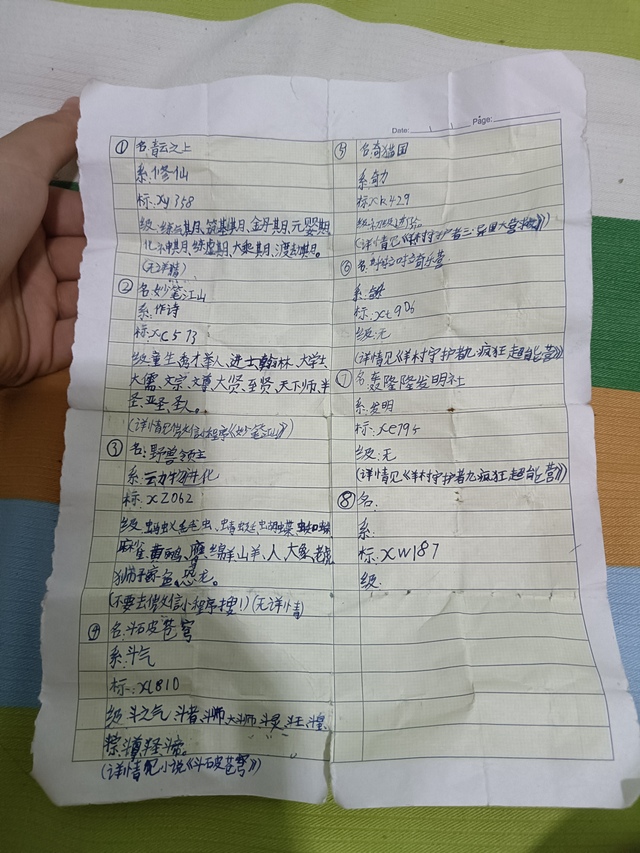 Date: Page:
① 名:青云之上
系:修仙
标:XY358
级:练气期、筑基期、金丹期、元婴期
化神期、练虚期、大乘期、渡劫期。
(无详情)
② 名:妙笔江山
系:作诗
标:XC573
级:童生、秀才、举人、进士、翰林、大学士
大儒、文宗、文尊、大贤、至贤、天下师、半
圣、亚圣、圣人。
(详情见微信小程序《妙笔江山》)
③ 名:野兽领主
系:动物进化
标:XZ062
级:蚂蚁、毛毛虫、蜻蜓、蝴蝶、蜘蛛
麻雀、黄鹂、鹰、绵羊、山羊、人、大象、老虎
狮子、鲸鱼、恐龙。
(不要去微信小程序搜!)(无详情)
④ 名:斗石皮苍穹
系:斗气
标:XL810
级:斗之气、斗者、斗师、大斗师、斗灵、斗王、斗皇
斗宗、斗尊、斗圣、斗帝。
(详情见小说《斗石皮苍穹》)
⑤ 名:奇猫国
系:奇力
标:XK429
级:初级、进阶。
(详情见《羊村守护者三·异国大营救》)
⑥ 名:音乐营
系:
标:Xt906
级:无
(详情见《羊村守护者九·疯狂超能营》)
⑦ 名:轰隆隆发明社
系:发明
标:XC794
级:无
(详情见《羊村守护者九·疯狂超能营》)
⑧ 名:
系:
标:XW187
级: